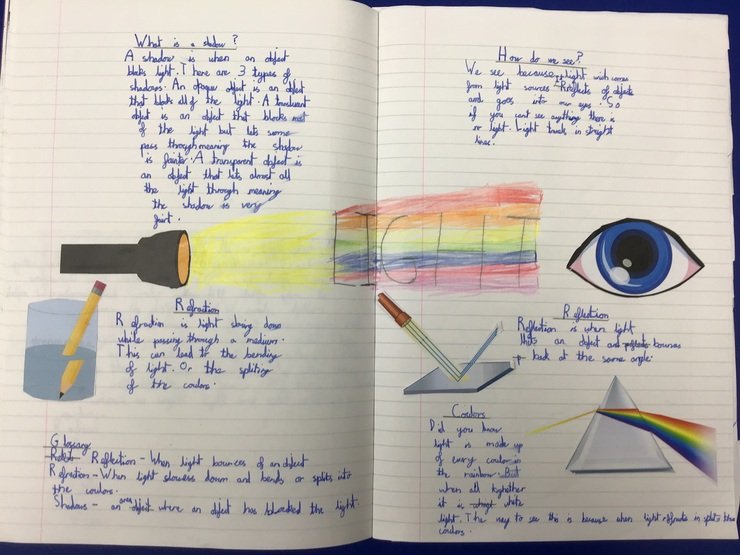 What is a shadow?
A shadow is when an object
blocks light. There are 3 types of
shadows. An opaque object is an object
that blocks all of the light. A translucent
object is an object that blocks most
of the light but lets some
pass through meaning the shadow
is fainter. A transparent object is
an object that lets almost all
the light through meaning
the shadow is very
faint.
LIGHT
Refraction
Refraction is light slowing down
while passing through a medium.
This can lead to the bending
of light. Or the spliting
of the coulors.
Glossary
Reflection - When light bounces of an object
Refraction - When light slowess down and bends or splits into
the coulors.
Shadows - an area where an object has blocked the light.
How do we see?
We see because light wich comes
from light sources Rreflects of objects
and goes into our eyes. So
if you cant see anything there is
no light. Light travels in straight
lines.
Reflection
Reflection is when light
hits an object and bounces
back at the same angle.
Coulors
Did you know
light is made up
of every coulor in
the rainbow. But
when all together
it is white
light. The way to see this is because when light refracts in splits the
coulors.